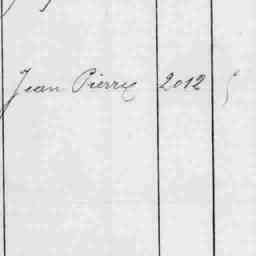 Jean Pierre 2012